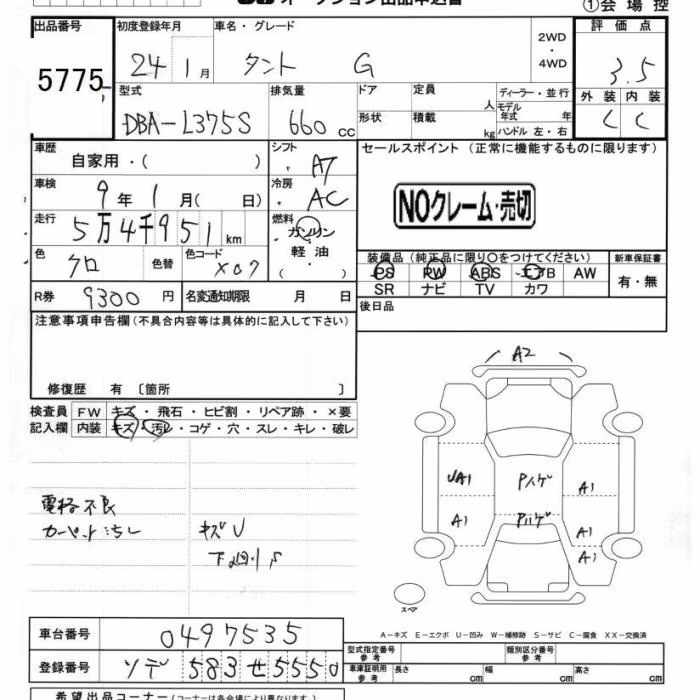 オークション出品申込書
①会場控
出品番号 初度登録年月 車名・グレード 2WD・4WD 評価点
5775 24 1月 タント G 3.5
型式 排気量 ドア 定員 人 ディーラー・並行 外装 内装
DBA-L375S 660cc 形状 積載 kg モデル年式 年 ハンドル 左・右 C C
車歴 シフト セールスポイント(正常に機能するものに限ります)
自家用・( ) AT
車検 9年1月( 日) 冷房 AC NOクレーム・売切
走行 5万4千951km 燃料 ガソリン 軽油 ( )
色 クロ 色替 色コード X07 装備品(純正品に限り○をつけてください) 新車保証書
PS PW ABS エアB AW 有・無
R券 9300円 名変通知期限 月 日 SR ナビ TV カワ
注意事項申告欄(不具合内容等は具体的に記入して下さい) 後日品
修復歴 有〔箇所 〕
検査員 FW キズ・飛石・ヒビ割・リペア跡・×要
記入欄 内装 キズ・汚レ・コゲ・穴・スレ・キレ・破レ
A2
UA1 Pハゲ A1
A1 Pハゲ A1
A1
電格不良
カーペット汚レ キズU
下回りS
スペア
A-キズ E-エクボ U-凹み W-補修跡 S-サビ C-腐食 XX-交換済
車台番号 0497535 型式指定番号 参考 類別区分番号 参考
登録番号 ソデ 583 せ 5550 車庫証明用 参考 長さ cm 幅 cm 高さ cm
希望出品コーナー(コーナーは各会場により異なります)